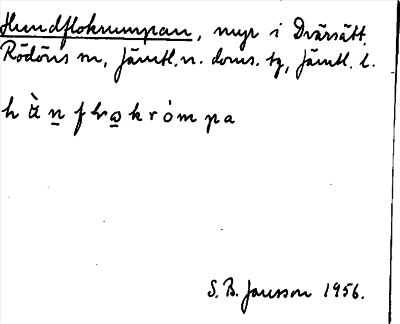 Hundflokrumpan, myr i Dvärsätt,
Rödöns sn, Jämtl. n. doms. tg, Jämtl. l.
S. B. Jansson 1956.